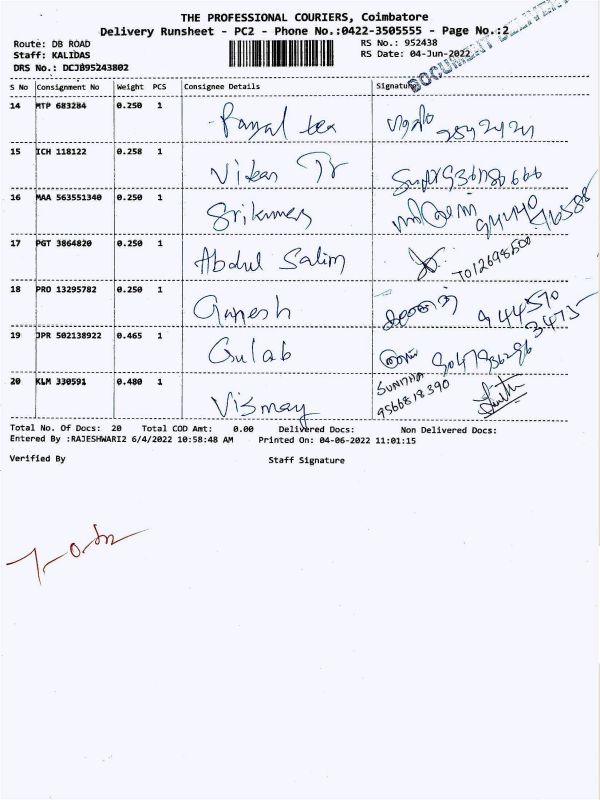 THE PROFESSIONAL COURIERS, Coimbatore
Delivery Runsheet - PC2 - Phone No.:0422-3505555 - Page No.:2
DOCUMENT DELIVERY
Route: DB ROAD
RS No.: 952438
Staff: KALIDAS
RS Date: 04-Jun-2022
DRS No.: DCJB95243802
S No Consignment No Weight PCS Consignee Details Signature
14 MTP 683284 0.250 1
15 ICH 118122 0.258 1
16 MAA 563551340 0.250 1 Srikumar
17 PGT 3864820 0.250 1 Abdul Salim 7012698500
18 PRO 13295782 0.250 1 Ganesh 944570
3475
19 JPR 502138922 0.465 1 Gulab
20 KLM 330591 0.480 1 Vismay SUNITHA
9566818390
Total No. Of Docs: 20 Total COD Amt: 0.00 Delivered Docs: Non Delivered Docs:
Entered By :RAJESHWARI2 6/4/2022 10:58:48 AM Printed On: 04-06-2022 11:01:15
Verified By Staff Signature